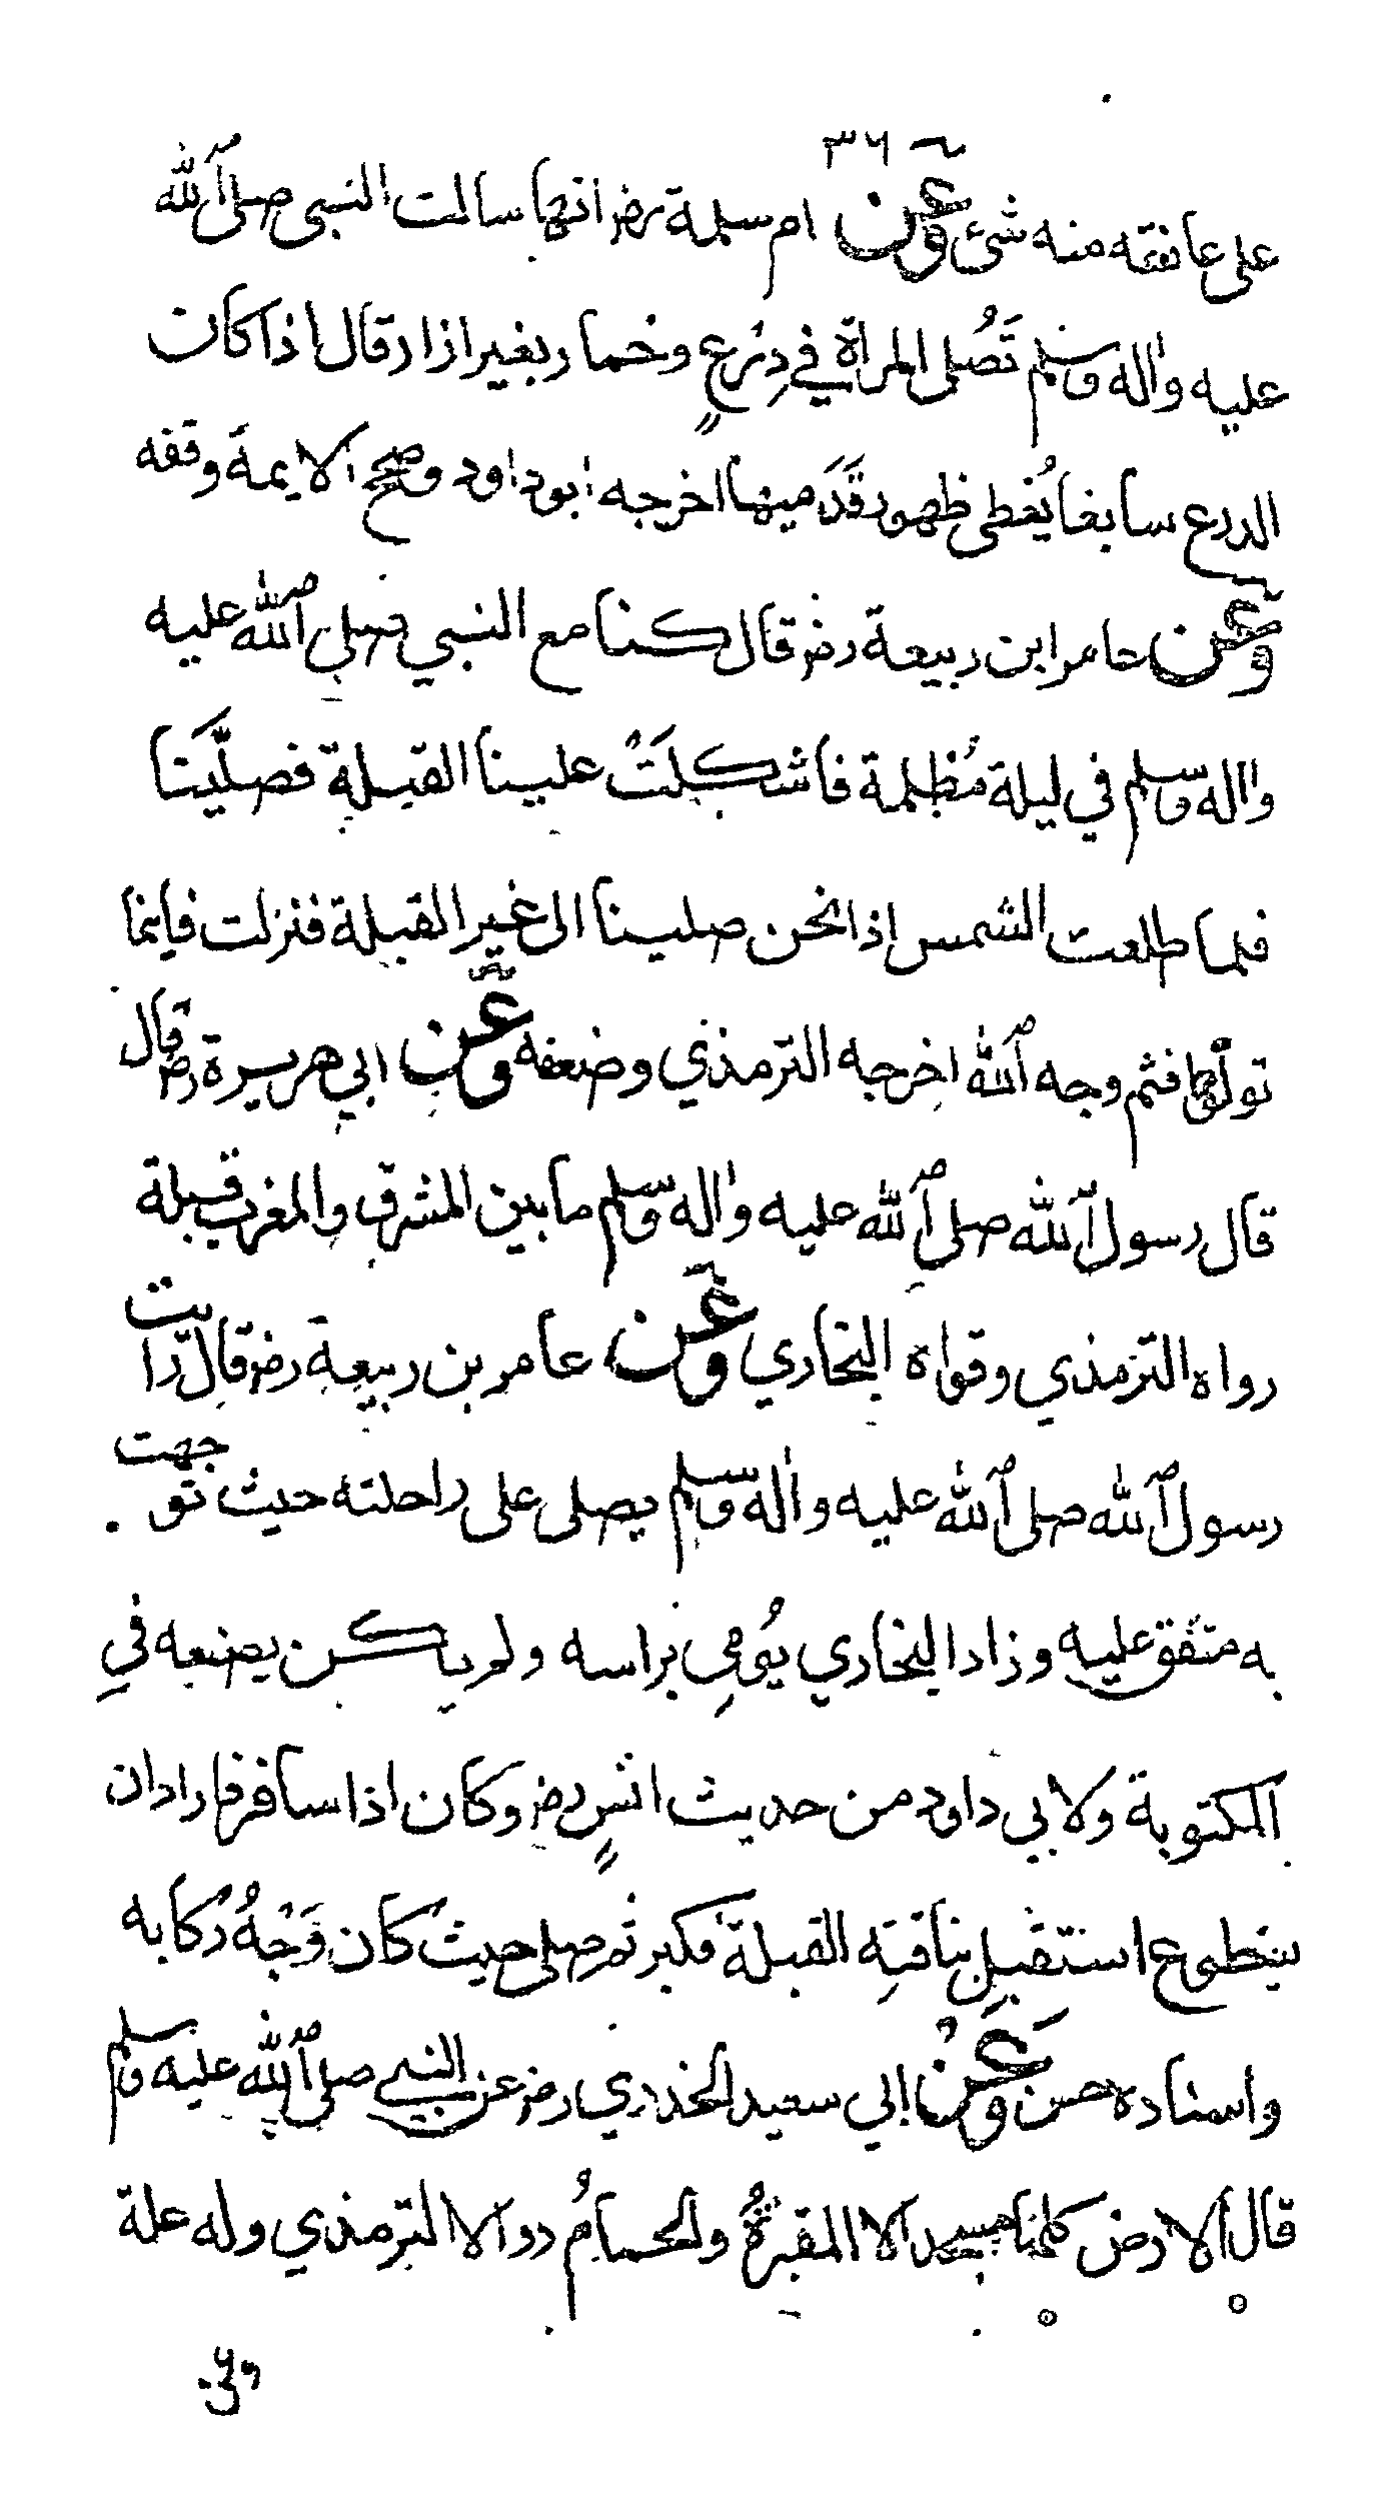 ٣٦
على عاتقه منه شئ وعن ام سلمة رضر انها سالت النبى صلى الله
عليه واله وسلم تَصُلى المراة في دِرعٍ وخمار بغير ازار قال اذا كان
الدرع سابغا يُغطى ظهور قَدَميها اخرجه ابوداود وصحح الايمة وقفه
وعن عامر ابن ربيعة رضر قال كنا مع النبي صلى الله عليه
واله وسلم في ليلة مُظلمة فاشكلَتْ علينا القبلة فصلَّيَنا
فلما طلعت الشمس اذا نحن صلينا الى غير القبلة فنزلت فاينما
تولوا فثم وجه الله اخرجه الترمذي وضعفه وعن ابي هريرة رضر قال
قال رسول الله صلى الله عليه واله وسلم ما بين المشرق والمغرب قبلة
رواه الترمذي وقواه البخاري وعن عامر بن ربيعة رضر قال رايت
رسول الله صلى الله عليه واله وسلم يصلى على راحلته حيث توجهت
به متفق عليه وزاد البخاري يُومِي براسه ولم يكن يصنعه في
المكتوبة ولابي داود من حديث انسٍ رضر وكان اذا سافر فارادان
يتطوع استقبل بناقته القبلة فكبر ثم صلى حيث كان وَجْهُ ركابه
واسناده حسن وَعَنْ ابي سعيد الخدري رضر عن النبي صلى الله عليه وسلم
قال الارض كلها مسجد الا المقبرةُ والحمامُ رواه الترمذي وله علة